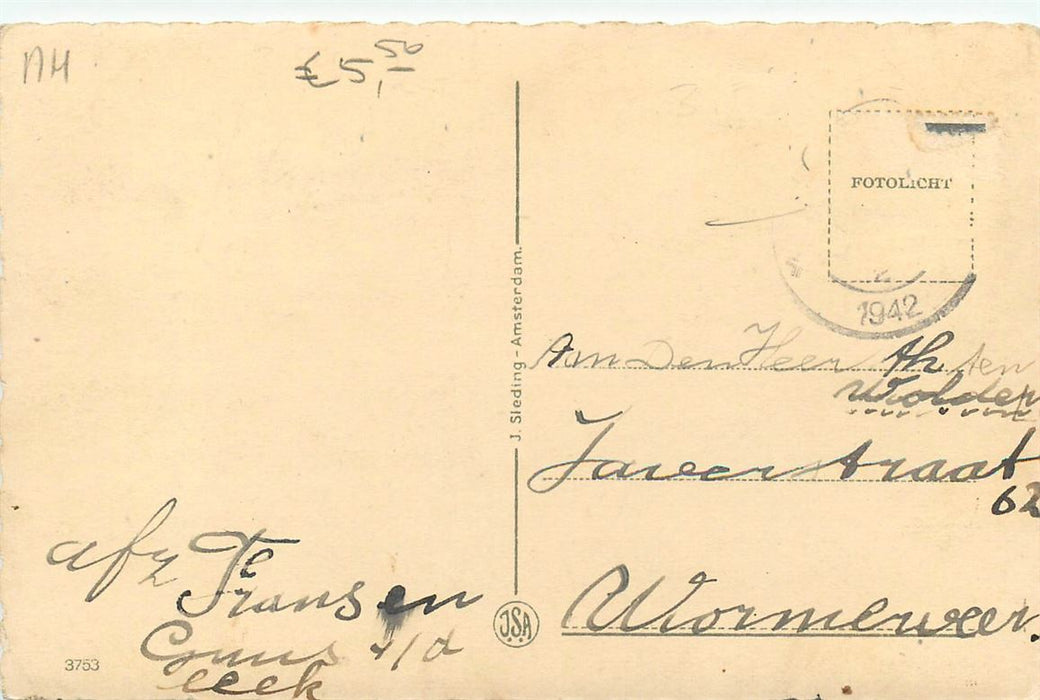 NH
£5,50
FOTOLICHT
1942
J. Sleding - Amsterdam.
Aan Den Heer Th. ten
Wolden
straat
62
Wormerveer.
afz Fransen
JSA
3753